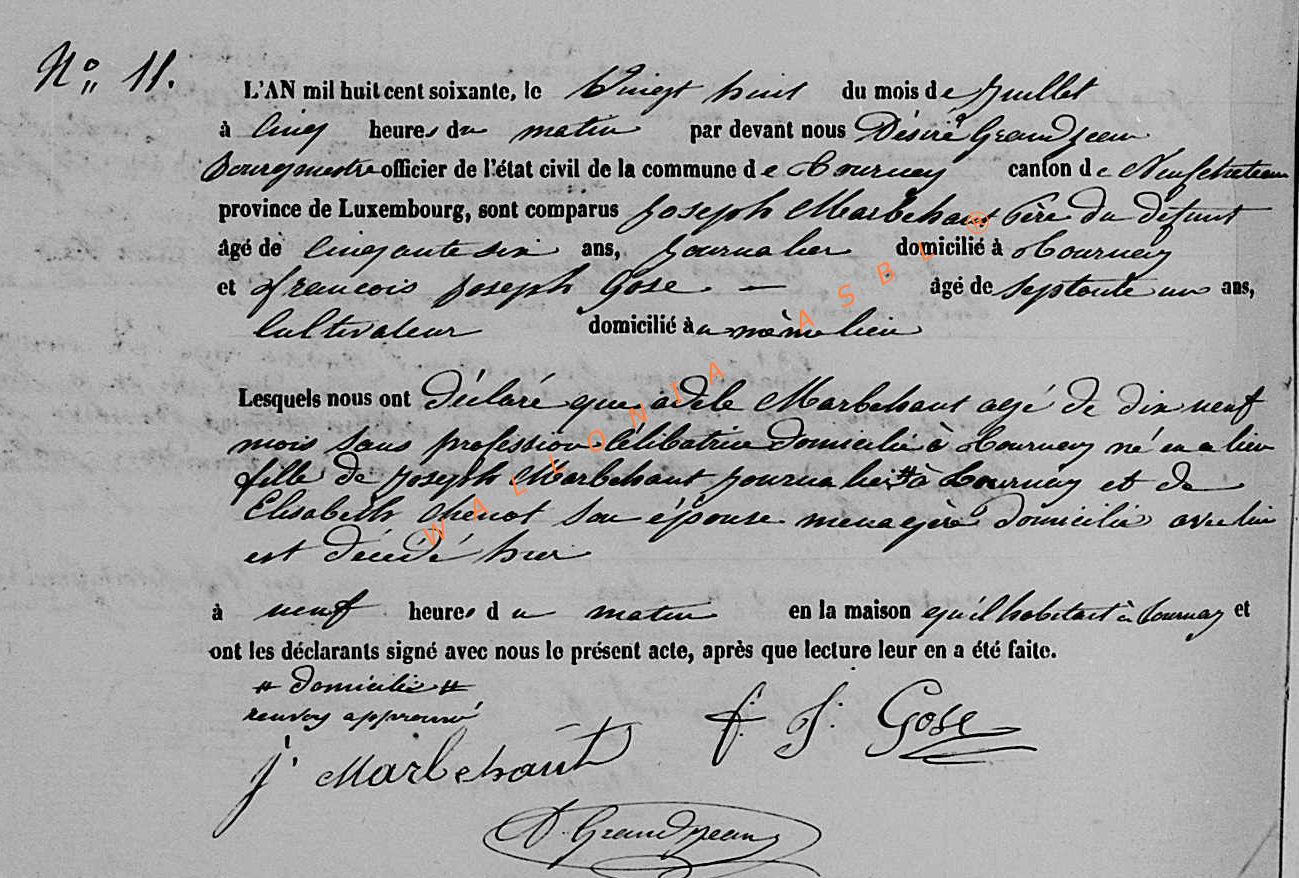 No 11.
L'AN mil huit cent soixante, le Vingt huit du mois de Juillet
à cinq heures du matin par devant nous Désiré Grandjean
Bourgmestre officier de l'état civil de la commune de Tournay canton de Neufchateau
province de Luxembourg, sont comparus Joseph Marbehant Père du défunt
âgé de cinquante six ans, journalier domicilié à Tournay
et francois joseph Gose — âgé de septante un ans,
Cultivateur domicilié au même lieu
Lesquels nous ont déclaré que adele Marbehant agé de dix neuf
mois sans profession Célibataire domicilié à Tournay né en ce lieu
fille de Joseph Marbehant journalier # à Tournay et de
Elisabeth Chenot son épouse menagère domicilié avec lui
est décédé hier
à neuf heures du matin en la maison qu'il habitait à Tournay et
ont les déclarants signé avec nous le présent acte, après que lecture leur en a été faite.
# domicilié #
renvoy approuvé
J. Marbehant f. J. Gose
D. Grandjean
WALLONIA ASBL ®